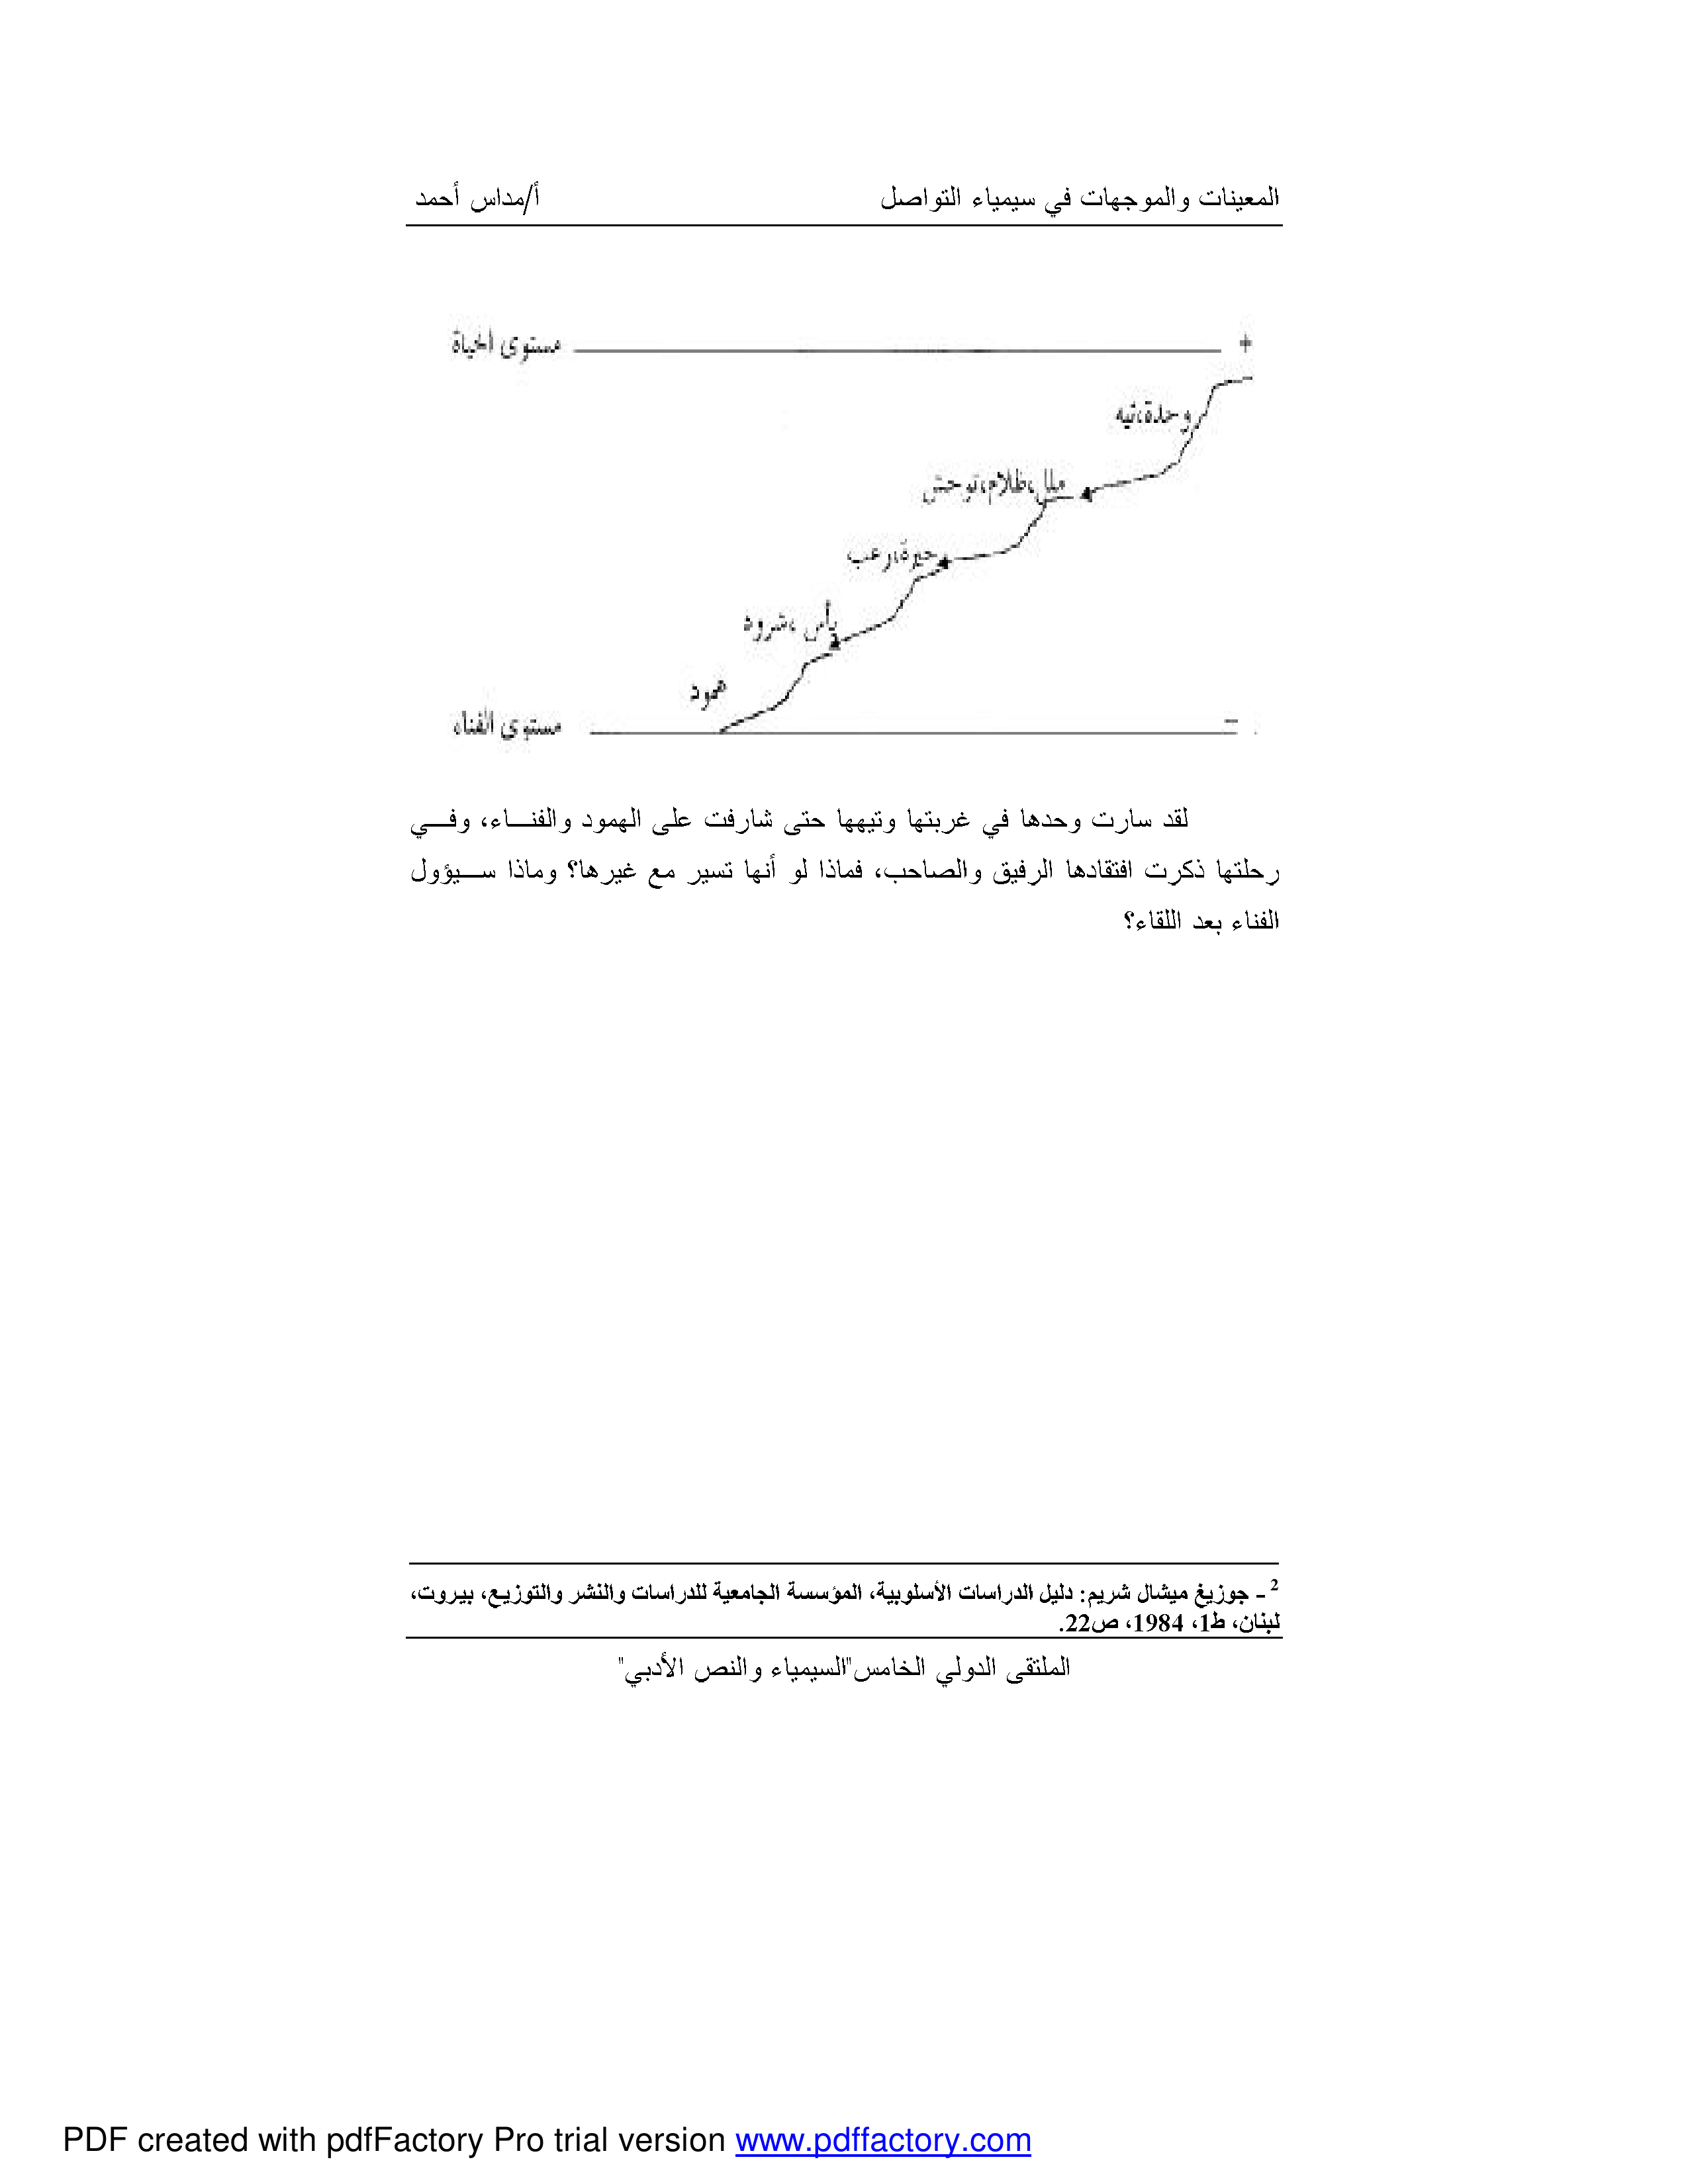 المعينات والموجهات في سيمياء التواصل أ/مداس أحمد
مستوى الحياة +
وحدة،تيه
ملل،ظلام،توحش
حيرة،رعب
يأس ،شرود
همود
مستوى الفناء -
لقد سارت وحدها في غربتها وتيهها حتى شارفت على الهمود والفنـــاء، وفـــي
رحلتها ذكرت افتقادها الرفيق والصاحب، فماذا لو أنها تسير مع غيرها؟ وماذا ســـيؤول
الفناء بعد اللقاء؟
2 - جوزيغ ميشال شريم: دليل الدراسات الأسلوبية، المؤسسة الجامعية للدراسات والنشر والتوزيع، بيروت،
لبنان، ط1، 1984، ص22.
الملتقى الدولي الخامس"السيمياء والنص الأدبي"
PDF created with pdfFactory Pro trial version www.pdffactory.com